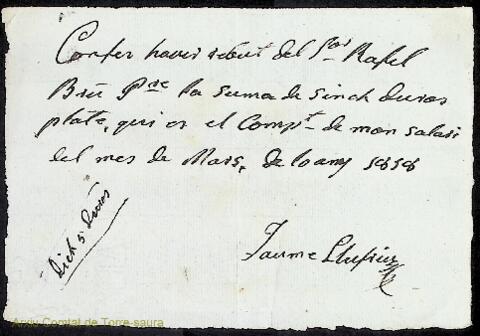 Confes haver rebut del Sor. Rafel
Briu Pre. la suma de sinch duros
plata, qui es el Compt. de mon salari
del mes de Mars, de lo any 1858
Dich 5 duros
Jaume Llufriu
Arxiu Comtal de Torre-saura